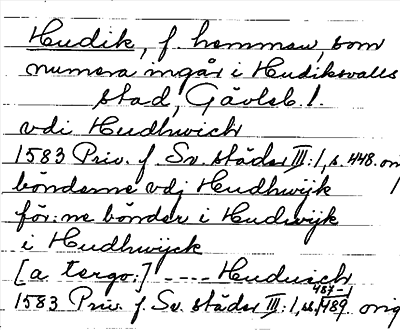 Hudik, f. hemman, som
numera ingår i Hudiksvalls
stad, Gävleb. l.
vdi Hudhwich
1583 Priv. f. Sv. städer III:1, s. 448. ori
bönderne vdj Hudhwijk
för:ne bönder i Hudwijk
i Hudhwijck
[a tergo:] ---- Huduich
487-1
1583 Priv. f. Sv. städer III:1, ss. 489. orig